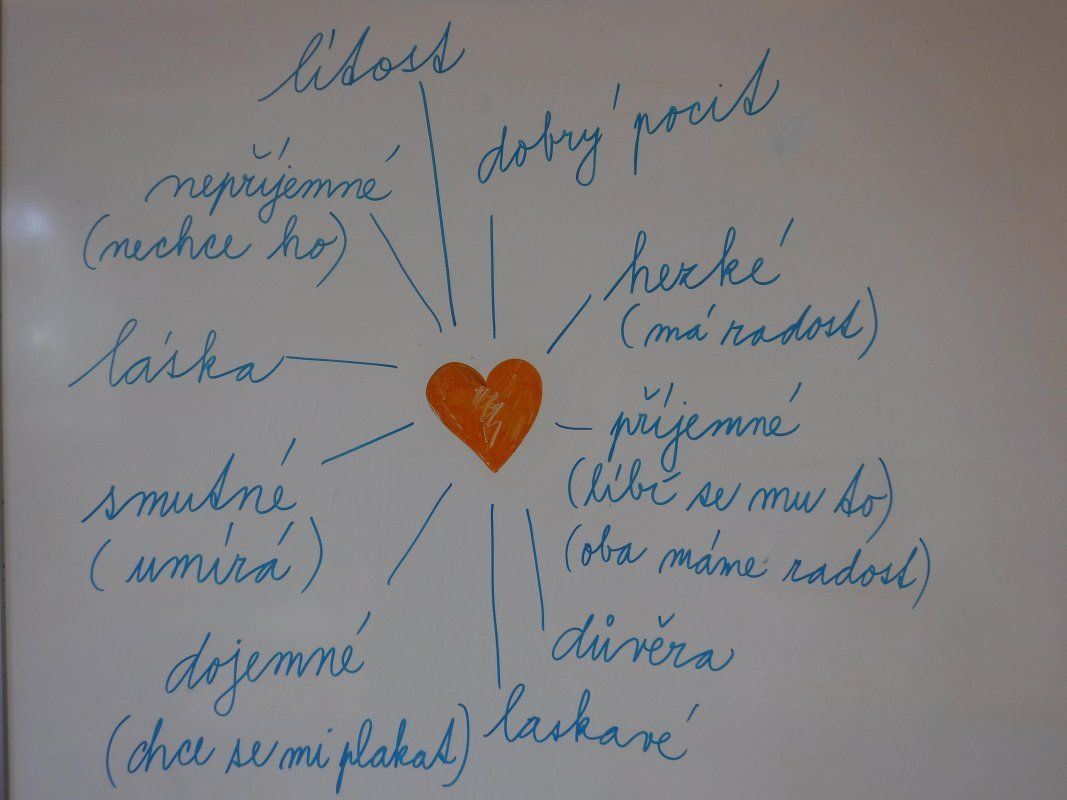 lítost
dobrý pocit
nepříjemné
(nechce ho)
hezké
(má radost)
láska
příjemné
(líbí se mu to)
(oba máme radost)
smutné
(umírá)
důvěra
dojemné
(chce se mi plakat)
laskavé